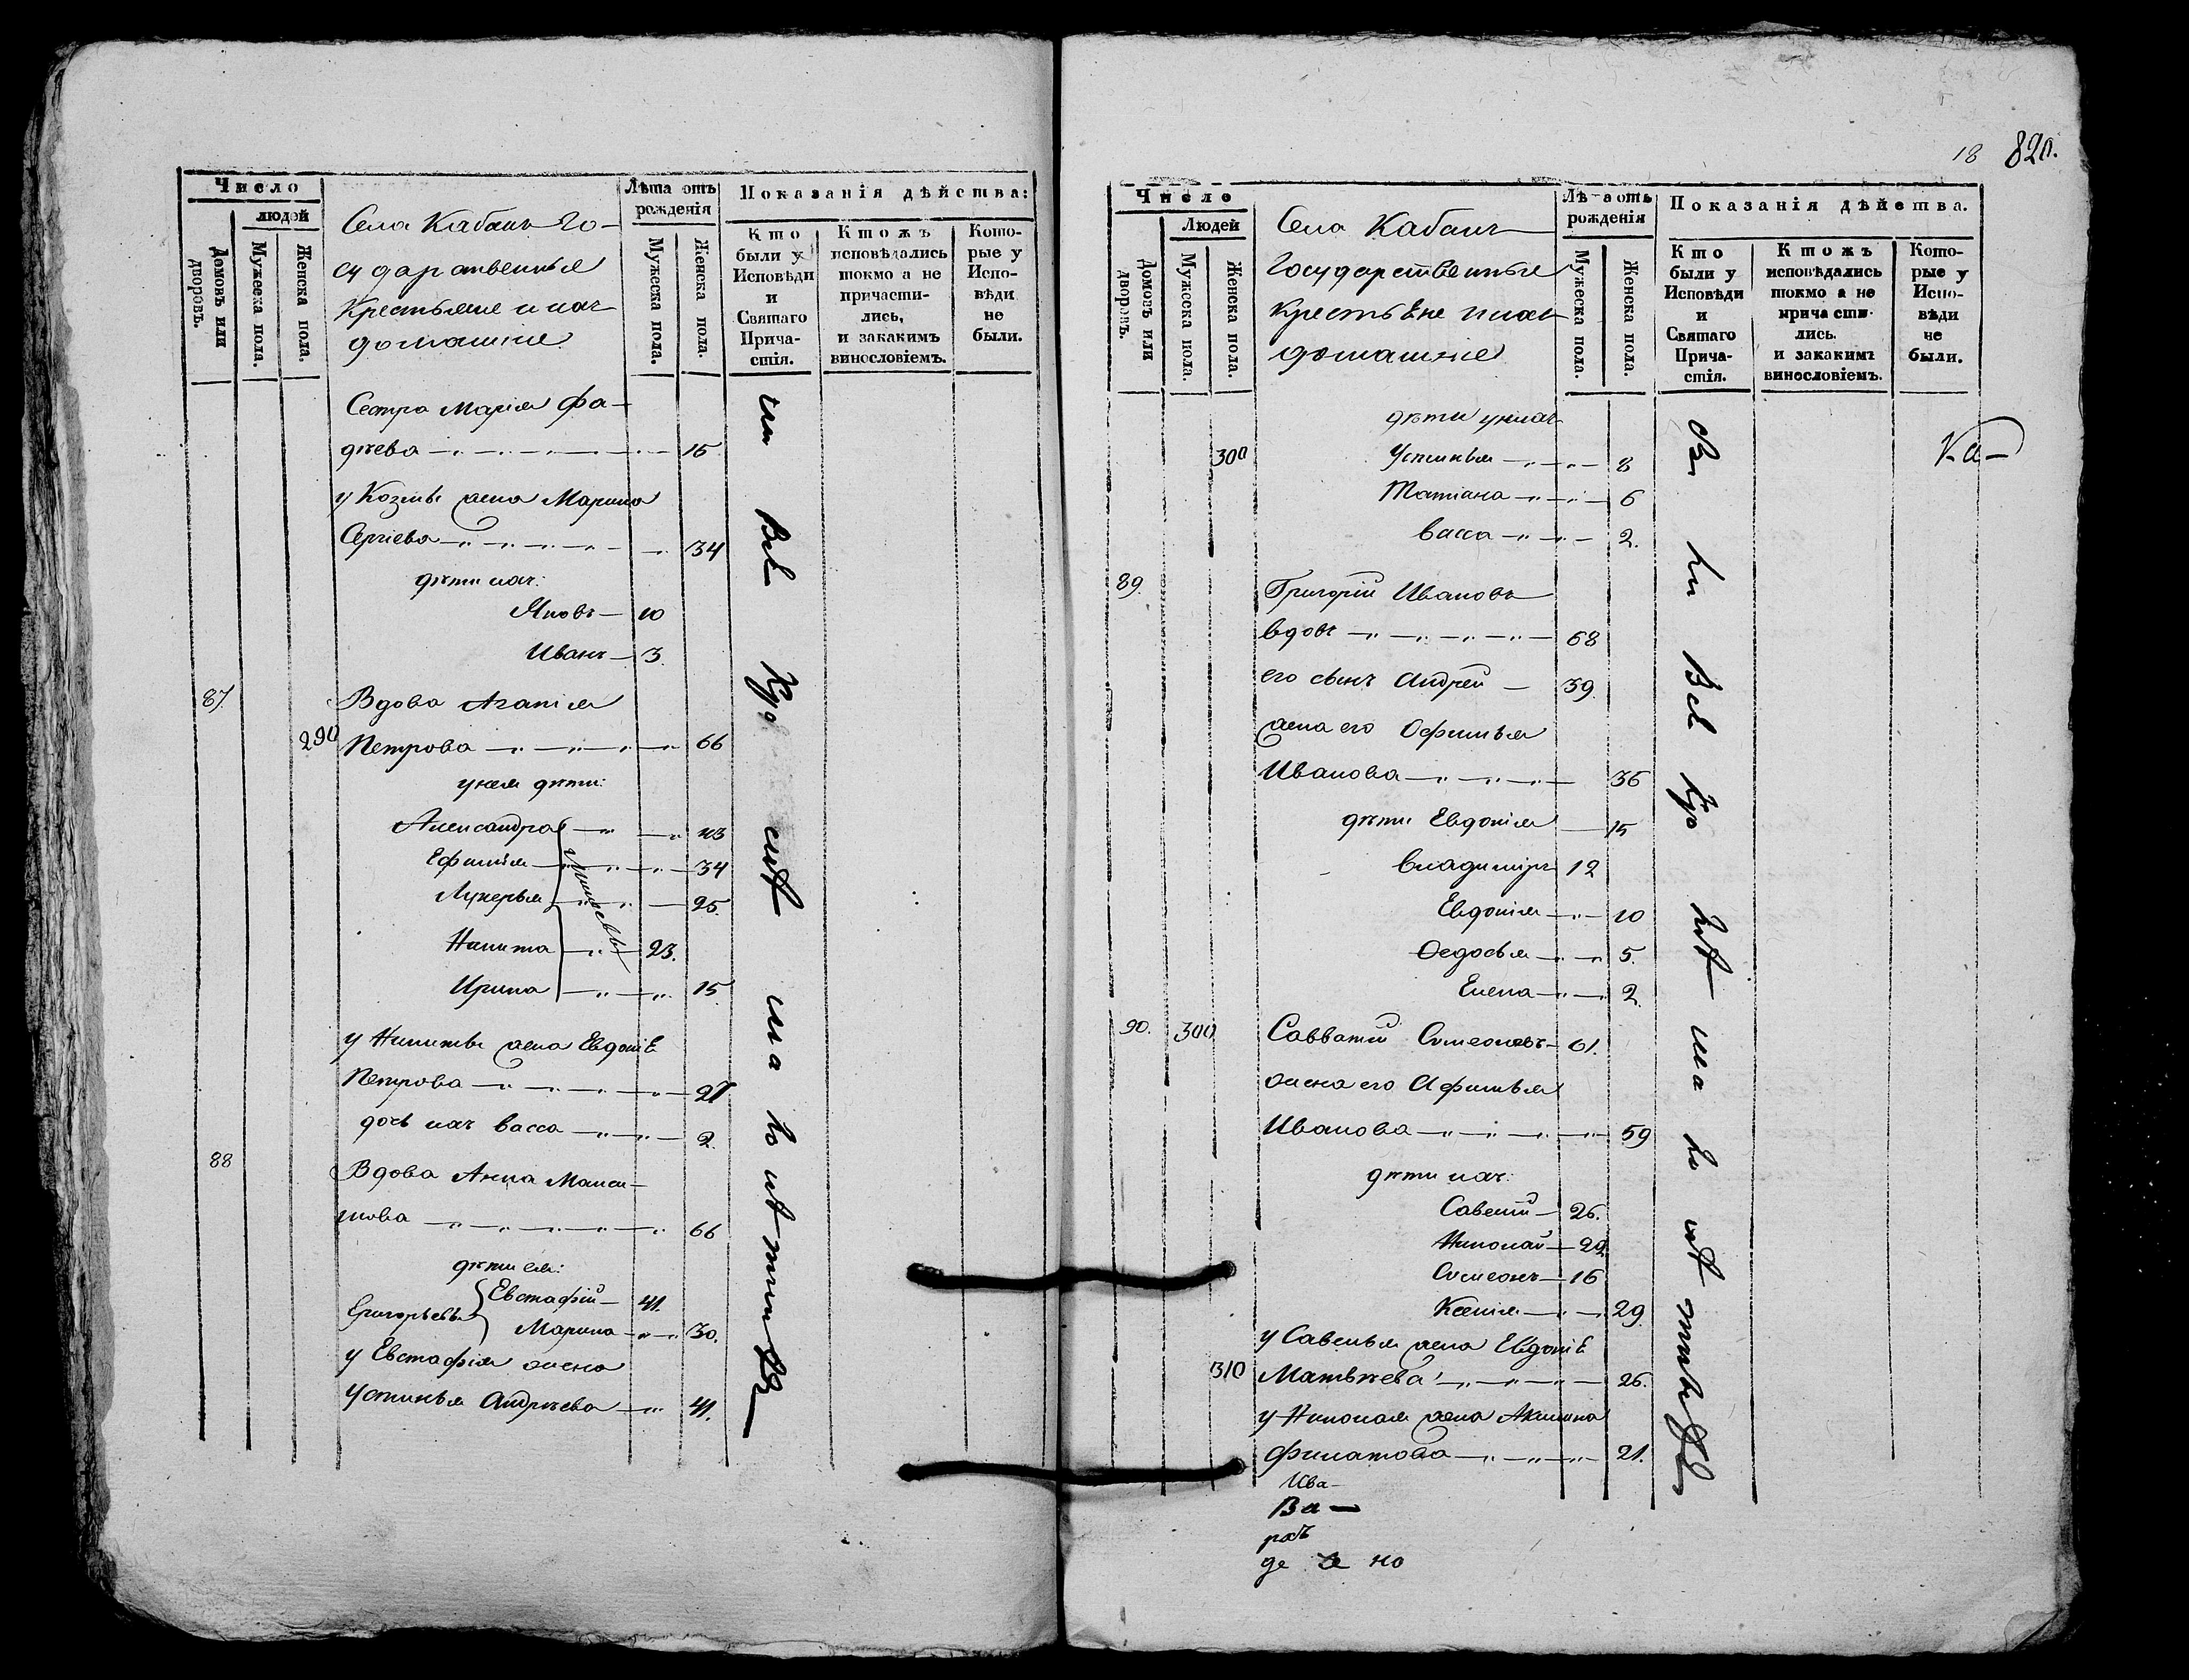 Число
людей
Домовъ или дворовъ.
Мужеска пола.
Женска пола.
Села Кабанъ Го-
сударственныя
Крестьяне и ихъ
домашніе
Лѣта отъ
рожденія
Мужеска пола.
Женска пола.
Показанія дѣйства:
Кто
были у
Исповѣди
и
Святаго
Прича-
стія.
Ктожъ
исповѣдались
токмо а не
причасти-
лись,
и закакимъ
винословіемъ.
Кото-
рые у
Испо-
вѣди
не
были.
Сестра Марія Фа-
дѣева 15
у Козмы жена Марина
Сергіева 34
дѣти ихъ:
Яковъ 10
Иванъ 3.
87. Вдова Агапія
290 Петрова 66
у нея дѣти:
Александра
Ефимія 34
Лукерья 25.
Никита 23.
Ирина 15.
у Никиты жена Евдокія
Петрова
дочь ихъ Васса 2.
88 Вдова Анна Макси-
мова 66
дѣти ея:
Григорьевы Евстафій 41.
Марина 30.
у Евстафія жена
Устинья Андрѣева 41.
18 820.
Число
Людей
Домовъ или дворовъ.
Мужеска пола.
Женска пола.
Села Кабанъ
Государственные
Крестьяне и ихъ
домашніе
Лѣта отъ
рожденія
Мужеска пола.
Женска пола.
Показанія дѣйства.
Кто
были у
Исповѣди
и
Святаго
Прича-
стія.
Ктожъ
исповѣдались
токмо а не
причасти-
лись.
и закакимъ
винословіемъ.
Кото-
рые у
Испо-
вѣди
не
были.
дѣти у нихъ
300 Устинья 8
Татіана 6
Васса 2.
89. Григорій Ивановъ
вдовъ 68
его сынъ Андрей 39.
жена его Офимья
Иванова 36
дѣти Евдокія 15
Владимиръ 12
Евдокія 10
Ѳедосья 5.
Елена 2.
90. 300 Савватій Симеоновъ 61.
жена его Афимья
Иванова 59
дѣти ихъ:
Савелій 26.
Николай
Симеонъ 16
Ксенія 29.
у Савелья жена Евдокія
310 Матвѣева 26.
у Николая жена Акилина
Филатова 21.
Ива-
Ва-
де но